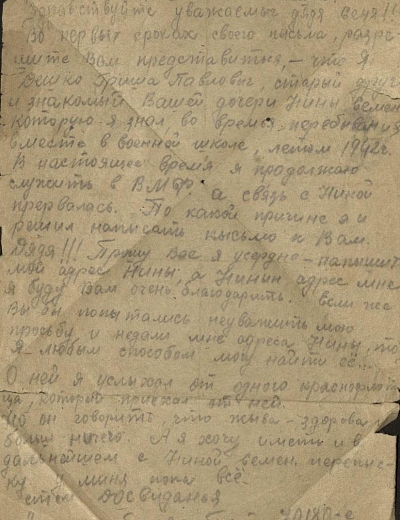 Здравствуйте уважаемый дядя Сеня!!
Во первых строках своего письма, разре-
шите Вам представиться, - что я
Дешко Гриша Павлович, старый друг
и знакомый Вашей дочери Нины Семен.
которую я знал во время перебывания
вместе в военной школе, летом 1942г.
В настоящее время я продолжаю
служить в ВМФ. а связь с Ниной
прервалась. По какой причине я и
решил написать письмо к Вам.
Дядя!!! Прошу Вас я усердно - напишите
мой адрес Нины, а Нинин адрес мне
я буду Вам очень благодарить. Если же
Вы бы попытались неуважить мою
просьбу и недали мне адреса Нины, то
я любым способом могу найти её...
О ней я услыхал от одного краснофлот
ца, который приехал от неё.
Но он говорить, что жыва-здорова
больш нечего. А я хочу иметь и в
дальнейшем с Ниной Семен. переписку
у миня пока всё.
Досвиданья